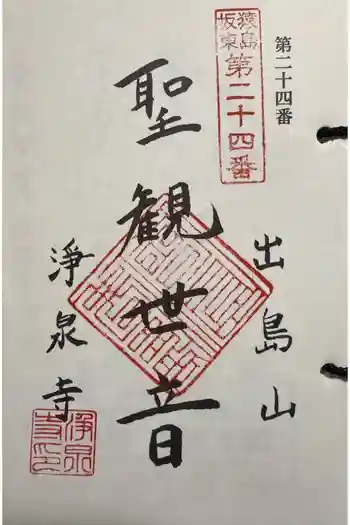 第二十四番
猿島
坂東
第二十四番
出島山
聖観世音
浄泉寺
浄泉
寺印